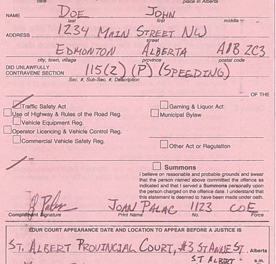 place in Alberta
NAME DOE JOHN
last first middle
ADDRESS 1234 MAIN STREET NW
street
EDMONTON ALBERTA A1B 2C3
city, town, village province postal code
DID UNLAWFULLY
CONTRAVENE SECTION 115(2)(P) (SPEEDING)
Sec. #, Sub-Sec. #, Description
OF THE
Traffic Safety Act Gaming & Liquor Act
Use of Highway & Rules of the Road Reg. Municipal Bylaw
Vehicle Equipment Reg.
Operator Licencing & Vehicle Control Reg.
Commercial Vehicle Safety Reg.
Other Act or Regulation
Summons
I believe on reasonable and probable grounds and swear
that the person named above committed the offence as
indicated and that I served a Summons personally upon
the person charged on the offence date. I understand that
the statement is deemed to have been made under oath.
J Palac JOAN PALAC 1123 COE
Complainant Signature Print Name No. Force
YOUR COURT APPEARANCE DATE AND LOCATION TO APPEAR BEFORE A JUSTICE IS
ST. ALBERT PROVINCIAL COURT, #3 ST ANNE ST. Alberta
ST ALBERT a.m.